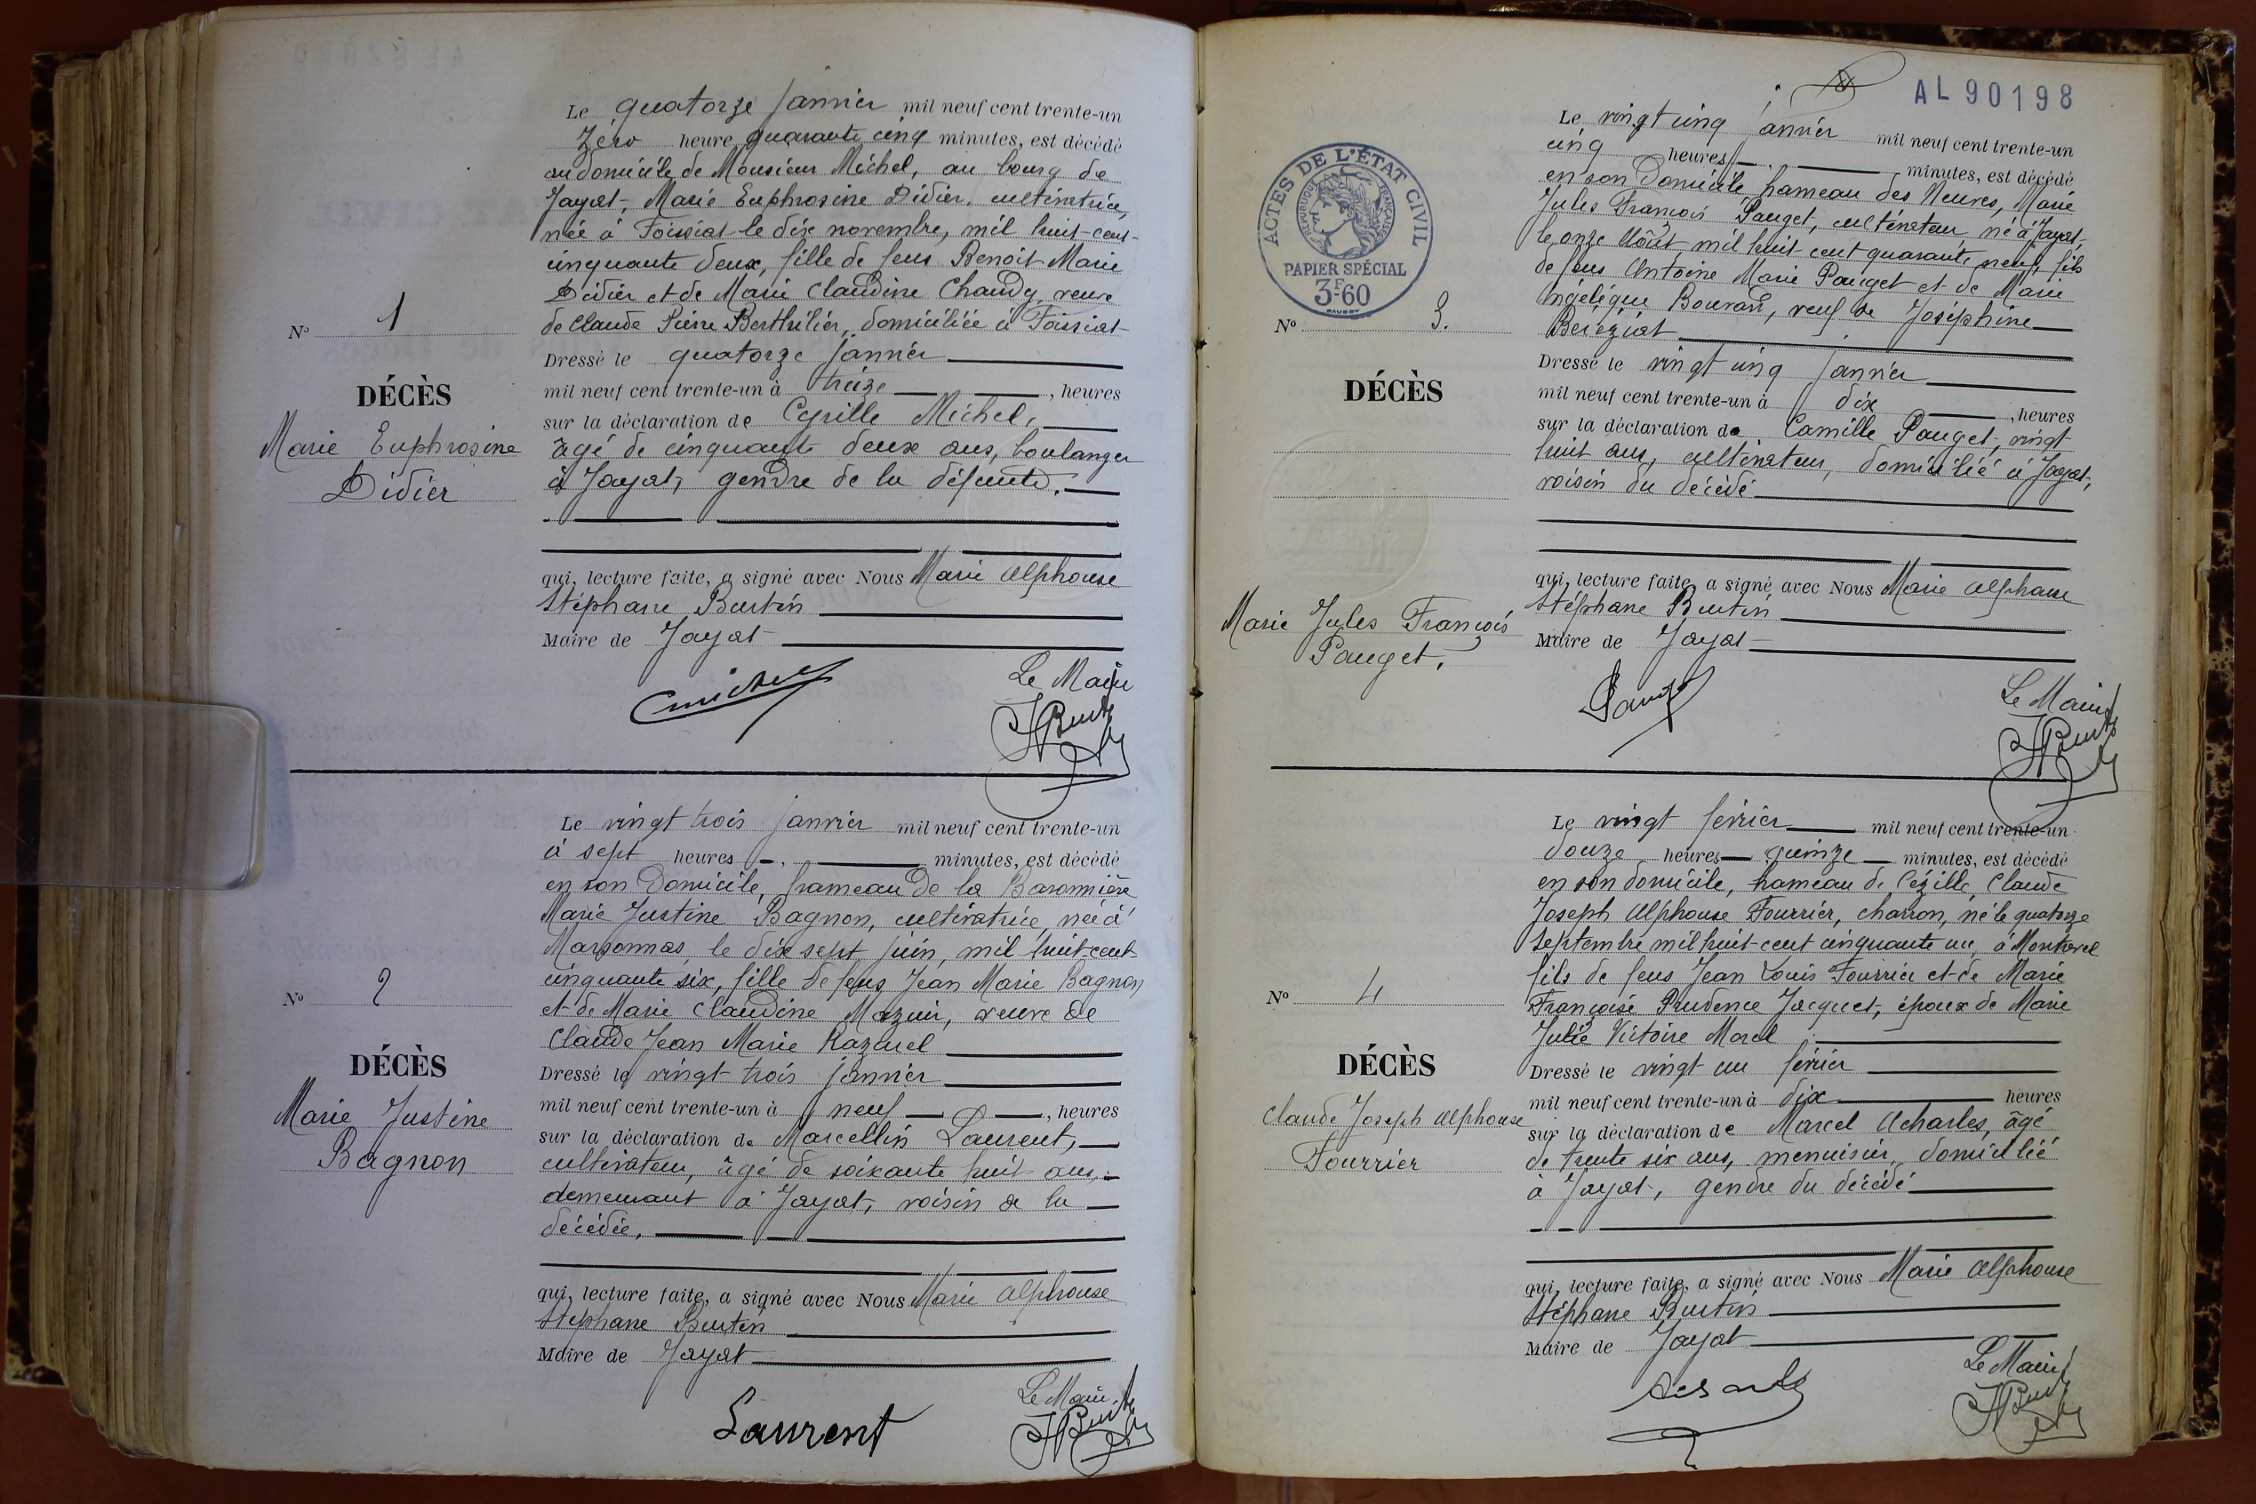 Le quatorze janvier mil neuf cent trente-un
Zéro heure quarante cinq minutes, est décédé
au domicile de Monsieur Michel, au bourg de
Jayat, Marie Euphrosine Didier, cultivatrice,
née à Foissiat le dix novembre, mil huit cent
cinquante deux, fille de feus Benoit Marie
Didier et de Marie Claudine Chaudy, veuve
de Claude Pierre Berthilier, domiciliée à Foissiat
Nº 1
Dressé le quatorze janvier
DÉCÈS
mil neuf cent trente-un à treize, heures
sur la déclaration de Cyrille Michel,
Marie Euphrosine
Didier
âgé de cinquante deux ans, boulanger
à Jayat, gendre de la défunte.
qui, lecture faite, a signé avec Nous Marie Alphonse
Stéphane Burtin
Maire de Jayat
Le Maire
CMichel
Burtin
Le vingt trois janvier mil neuf cent trente-un
à sept heures minutes, est décédé
en son domicile, hameau de la Baronnière
Marie Justine Bagnon, cultivatrice, née à
Marsonnas, le dix sept juin, mil huit cent
cinquante six, fille de feus Jean Marie Bagnon
et de Marie Claudine Mazuir, veuve de
Claude Jean Marie Razurel
Nº 2
DÉCÈS
Dressé le vingt trois janvier
mil neuf cent trente-un à neuf, heures
Marie Justine
Bagnon
sur la déclaration de Marcellin Laurent,
cultivateur, âgé de soixante huit ans,
demeurant à Jayat, voisin de la
décédée.
qui, lecture faite, a signé avec Nous Marie Alphonse
Stéphane Burtin
Maire de Jayat
Le Maire
Laurent
Burtin
AL 90198
ACTES DE L'ÉTAT CIVIL
RÉPUBLIQUE FRANÇAISE
PAPIER SPÉCIAL
3F-60
Le vingt cinq janvier mil neuf cent trente-un
cinq heures minutes, est décédé
en son domicile hameau des Neuves, Marie
Jules François Pauget, cultivateur né à Jayat,
le onze Août mil huit cent quarante neuf, fils
de feus Antoine Marie Pauget et de Marie
Angélique Bouvard, veuf de Joséphine
Bereziat
Nº 3.
DÉCÈS
Dressé le vingt cinq janvier
mil neuf cent trente-un à dix, heures
sur la déclaration de Camille Pauget, vingt
huit ans, cultivateur, domicilié à Jayat,
voisin du décédé
qui, lecture faite, a signé avec Nous Marie Alphonse
Stéphane Burtin
Marie Jules François
Pauget.
Maire de Jayat
Le Maire
Pauget
Burtin
Le vingt février mil neuf cent trente-un
douze heures quinze minutes, est décédé
en son domicile, hameau de Cézille, Claude
Joseph Alphonse Fourrier, charron, né le quatorze
septembre mil huit cent cinquante un, à Montrevel
fils de feus Jean Louis Fourrier et de Marie
Françoise Prudence Jacquet, époux de Marie
Julie Victoire Morel
Nº 4
DÉCÈS
Dressé le vingt un février
mil neuf cent trente-un à dix heures
Claude Joseph Alphonse
Fourrier
sur la déclaration de Marcel Acharles, âgé
de trente six ans, menuisier, domicilié
à Jayat, gendre du décédé
qui, lecture faite, a signé avec Nous Marie Alphonse
Stéphane Burtin
Maire de Jayat
Le Maire
Burtin